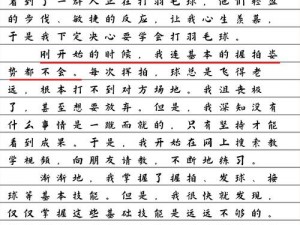 看到了一群人正在打羽毛球，他们轻盈
的步伐、敏捷的反应，让我心生羡慕，
于是我下定决心要学会打羽毛球。
刚开始的时候，我连基本的握拍姿
势都不会，每次挥拍，球总是飞得老
远，根本打不到对方场地。我沮丧极
了，甚至想要放弃。但是，我深知没有
什么事情是一蹴而就的，只有坚持才能
看到成果。于是，我开始在网上搜索教
学视频，向朋友请教，不断地练习。
渐渐地，我掌握了握拍、发球、接
球等基本技能。但是，我很快就发现，
仅仅掌握这些基础技能是远远不够的。